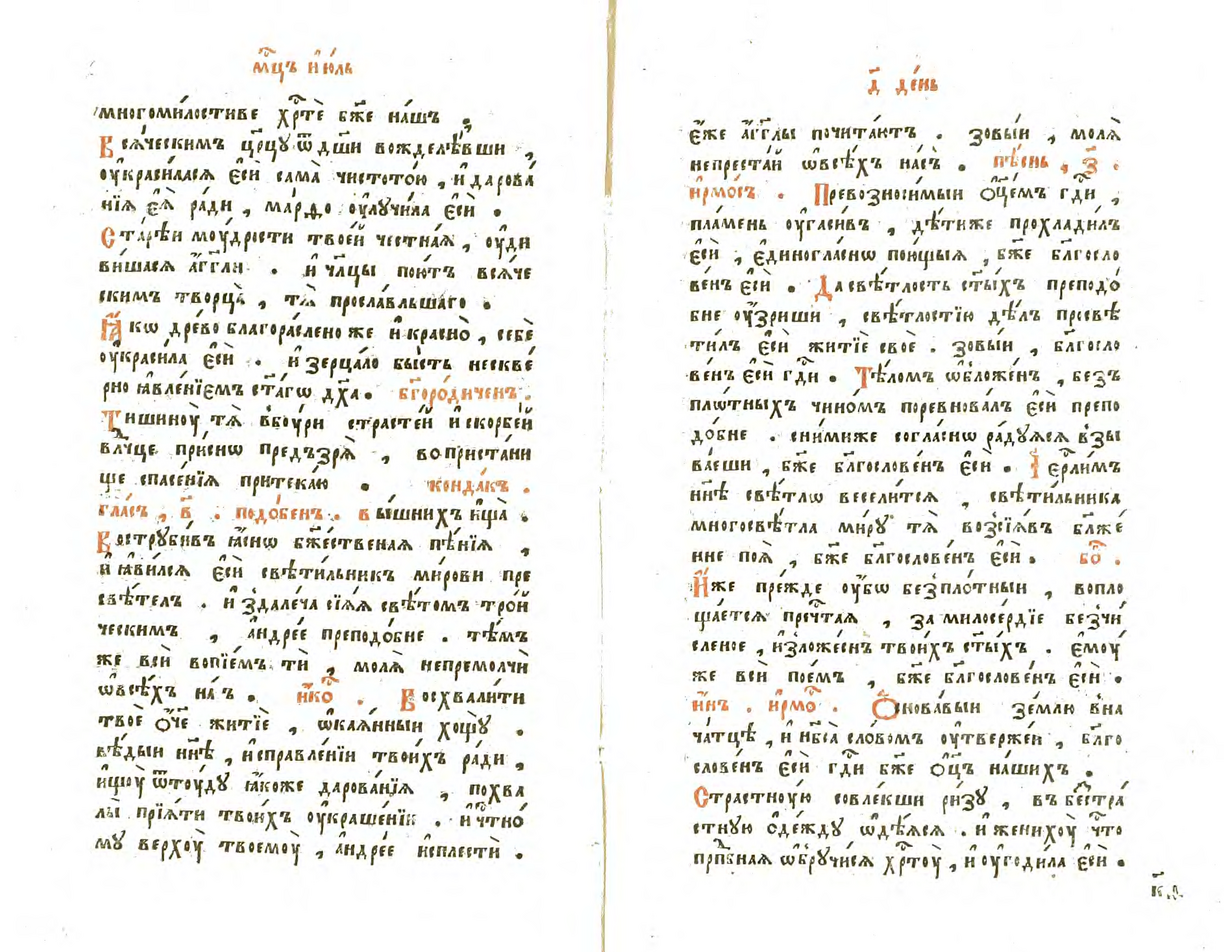 мⷭ҇цъ і҆ю́ль
многомл҇остиве хрⷭ҇тѐ бж҃е на́шъ .
Вся́ческимъ цр҃цу ѿ дш҃и вожделѣ́вши ,
ᲂу҆краси́лася є҆сѝ сама̀ чистото́ю , и҆ дарова́
нїѧ є҆ѧ̀ ра́ди , ма́рѳо ᲂу҆лучи́ла є҆сѝ .
Ста́рѣи моу́дрости твое́й честна́ѧ , ᲂу҆ди
ви́шасѧ а҆́гг҃ли . и҆ чл҃цы пою́тъ всѧ́че
скимъ творца̀ , тѧ̀ просла́вльшаго .
Ꙗ҆́кѡ дре́во благора́слено же и҆ красно̀ , себѐ
ᲂу҆краси́ла є҆сѝ . и҆ зерца́ло бы́сть нескве́
рно ꙗ҆вле́нїемъ ст҃а́гѡ дх҃а . бг҃оро́диченъ .
Тишино́ю тѧ̀ в̾бо́ури страсте́й и҆ скорбе́й
влⷣчце при́снѡ предъзрѧ̀ , во приста́ни
ще спасе́нїѧ притека́ю . конда́къ .
гла́съ , в҃ . подо́бенъ . вы́шнихъ и҆щѧ̀ .
Воструби́въ ꙗ҆́снѡ бж҃е́ственаѧ пѣ́нїѧ ,
и҆ ꙗ҆ви́лсѧ є҆сѝ свѣти́льникъ ми́рови пре
свѣ́телъ . и҆ з̾дале́ча сїѧ́ѧ свѣ́томъ тро́и
ческимъ , а҆ндре́е преподо́бне . тѣ́мъ
же всѝ вопїе́мъ тѝ , молѧ̀ непремолчѝ
ѡ҆всѣ́хъ на́съ . и҆́коⷭ҇ . Восхвали́ти
твоѐ ѻ҆́ч҃е житїѐ , ѡ҆каѧ́нныи хощу̀ .
вѣ́дыи нн҃ѣ , и҆справле́нїи твои́хъ ра́ди ,
и҆щоу̀ ѿтоу́ду ꙗ҆́коже дарова́нїѧ , похва
лы̀ прїѧ́ти твои́хъ ᲂу҆краше́нїи . и҆ чⷭ҇тно́
му верхоу̀ твоемоу̀ , а҆ндре́е и҆сплестѝ .
д҃ де́нь
є҆́же а҆́гг҃лы почита́ютъ . зовы́и , молѧ̀
непреста́й ѡ҆всѣ́хъ на́съ . пѣ́снь , з҃ .
і҆рмо́съ . Превозноси́мыи ѻ҆тцє́мъ гдⷭ҇и ,
пла́мень ᲂу҆гаси́въ , дѣ́тиже прохлади́лъ
є҆сѝ , є҆диногла́снѡ пою́щыѧ , бж҃е бл҃госло
ве́нъ є҆сѝ . Да свѣ́тлость ст҃ы́хъ преподо́
бне ᲂу҆́зриши , свѣ́тлостїю дѣ́лъ просвѣ
ти́лъ є҆сѝ житїѐ своѐ . зовы́и , бл҃госло
ве́нъ є҆сѝ гдⷭ҇и . Тѣ́ломъ ѡ҆бложе́нъ , безъ
пло́тныхъ чино́мъ поревнова́лъ є҆сѝ препо
до́бне . сни́миже согла́снѡ ра́дуѧсѧ взы
ва́еши , бж҃е бл҃гослове́нъ є҆сѝ . І҆ерⷭ҇ли́мъ
нн҃ѣ свѣ́тлѡ весели́тсѧ , свѣти́льника
многосвѣ́тла ми́ру тѧ̀ возсїѧ́въ бл҃же́
нне поѧ̀ , бж҃е бл҃гослове́нъ є҆сѝ . боⷢ҇ .
И҆́же пре́жде ᲂу҆́бѡ безпло́тныи , вопло
ща́етсѧ пречⷭ҇таѧ , за милосе́рдїе безчи́
сленое , и҆зложе́снъ твои́хъ ст҃ы́хъ . є҆моу́
же всѝ пое́мъ , бж҃е бл҃гослове́нъ є҆сѝ .
и҆́нъ . і҆рмоⷭ҇ . Ѻ҆снова́выи зе́млю в̾на
ча́тцѣ , и҆ нб҃са̀ сло́вомъ ᲂу҆твержѐи , бл҃го
слове́нъ є҆сѝ гдⷭ҇и бж҃е ѻ҆ц҃ъ на́шихъ .
Стра́стноую совле́кши ри́зу , въ бестра́
стную ѻ҆де́жду ѡ҆дѣ́ѧсѧ . и҆ женихоу̀ чⷭ҇то
прпⷣбнаѧ ѡ҆бручи́сѧ хрⷭ҇тоу̀ , и҆ ᲂу҆годи́ла є҆сѝ .